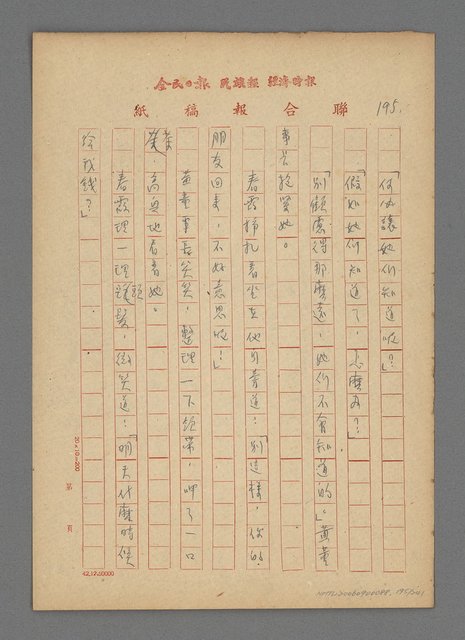 全民日報 民族報 經濟時報
聯合報稿紙
195.
「何必讓她們知道呢?」
「假如她們知道了,怎麼辦?」
「別顧慮得那麼遠,她們不會知道的。」黃董
事長抱緊她。
春霞掙扎着坐在他身旁道:「別這樣,你的
朋友回來,不好意思呢!」
黃董事長笑笑,整理一下領帶,呷了一口
茶,高興地看着她。
春霞理一理頭髮,微笑道:「明天什麼時候
給我錢?」
20×10=200
第 頁
42.12.50000